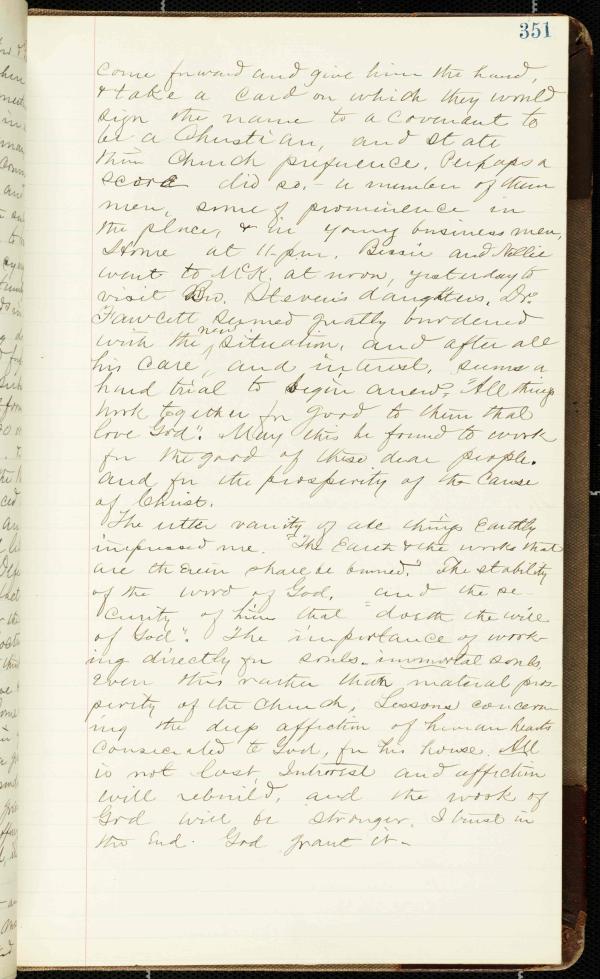 351
come forward and give him the hand,
& take a card on which they would
sign the name to a covenant to
be a Christian, and state
their Church preference. Perhaps a
score did so, - a number of them
men, some of prominence in
the place, & in young business men,
Home at 11 p.m. Bessie and Nellie
went to McK. at noon, yesterday to
visit Bro. Steven's daughters. Dr.
Fawcett seemed greatly burdened
with the new situation, and after all
his care, and interest, seems a
hard trial to begin anew. "All things
work together for good to them that
love God". May this be found to work
for the good of these dear people.
and for the prosperity of the Cause
of Christ.
The utter vanity of all things Earthly
impressed me. "The Earth & the works that
are therein shall be burned." The stability
of the word of God, and the se-
curity of him that "doeth the will
of God". The importance of work-
ing directly for souls - immortal souls
Even this rather than material pros-
perity of the church, Lessons concern-
ing the deep affection of human hearts
consecrated to God, for his house. All
is not lost, Interest and affection
will rebuild, and the work of
God will be stronger, I trust in
the End. God grant it -